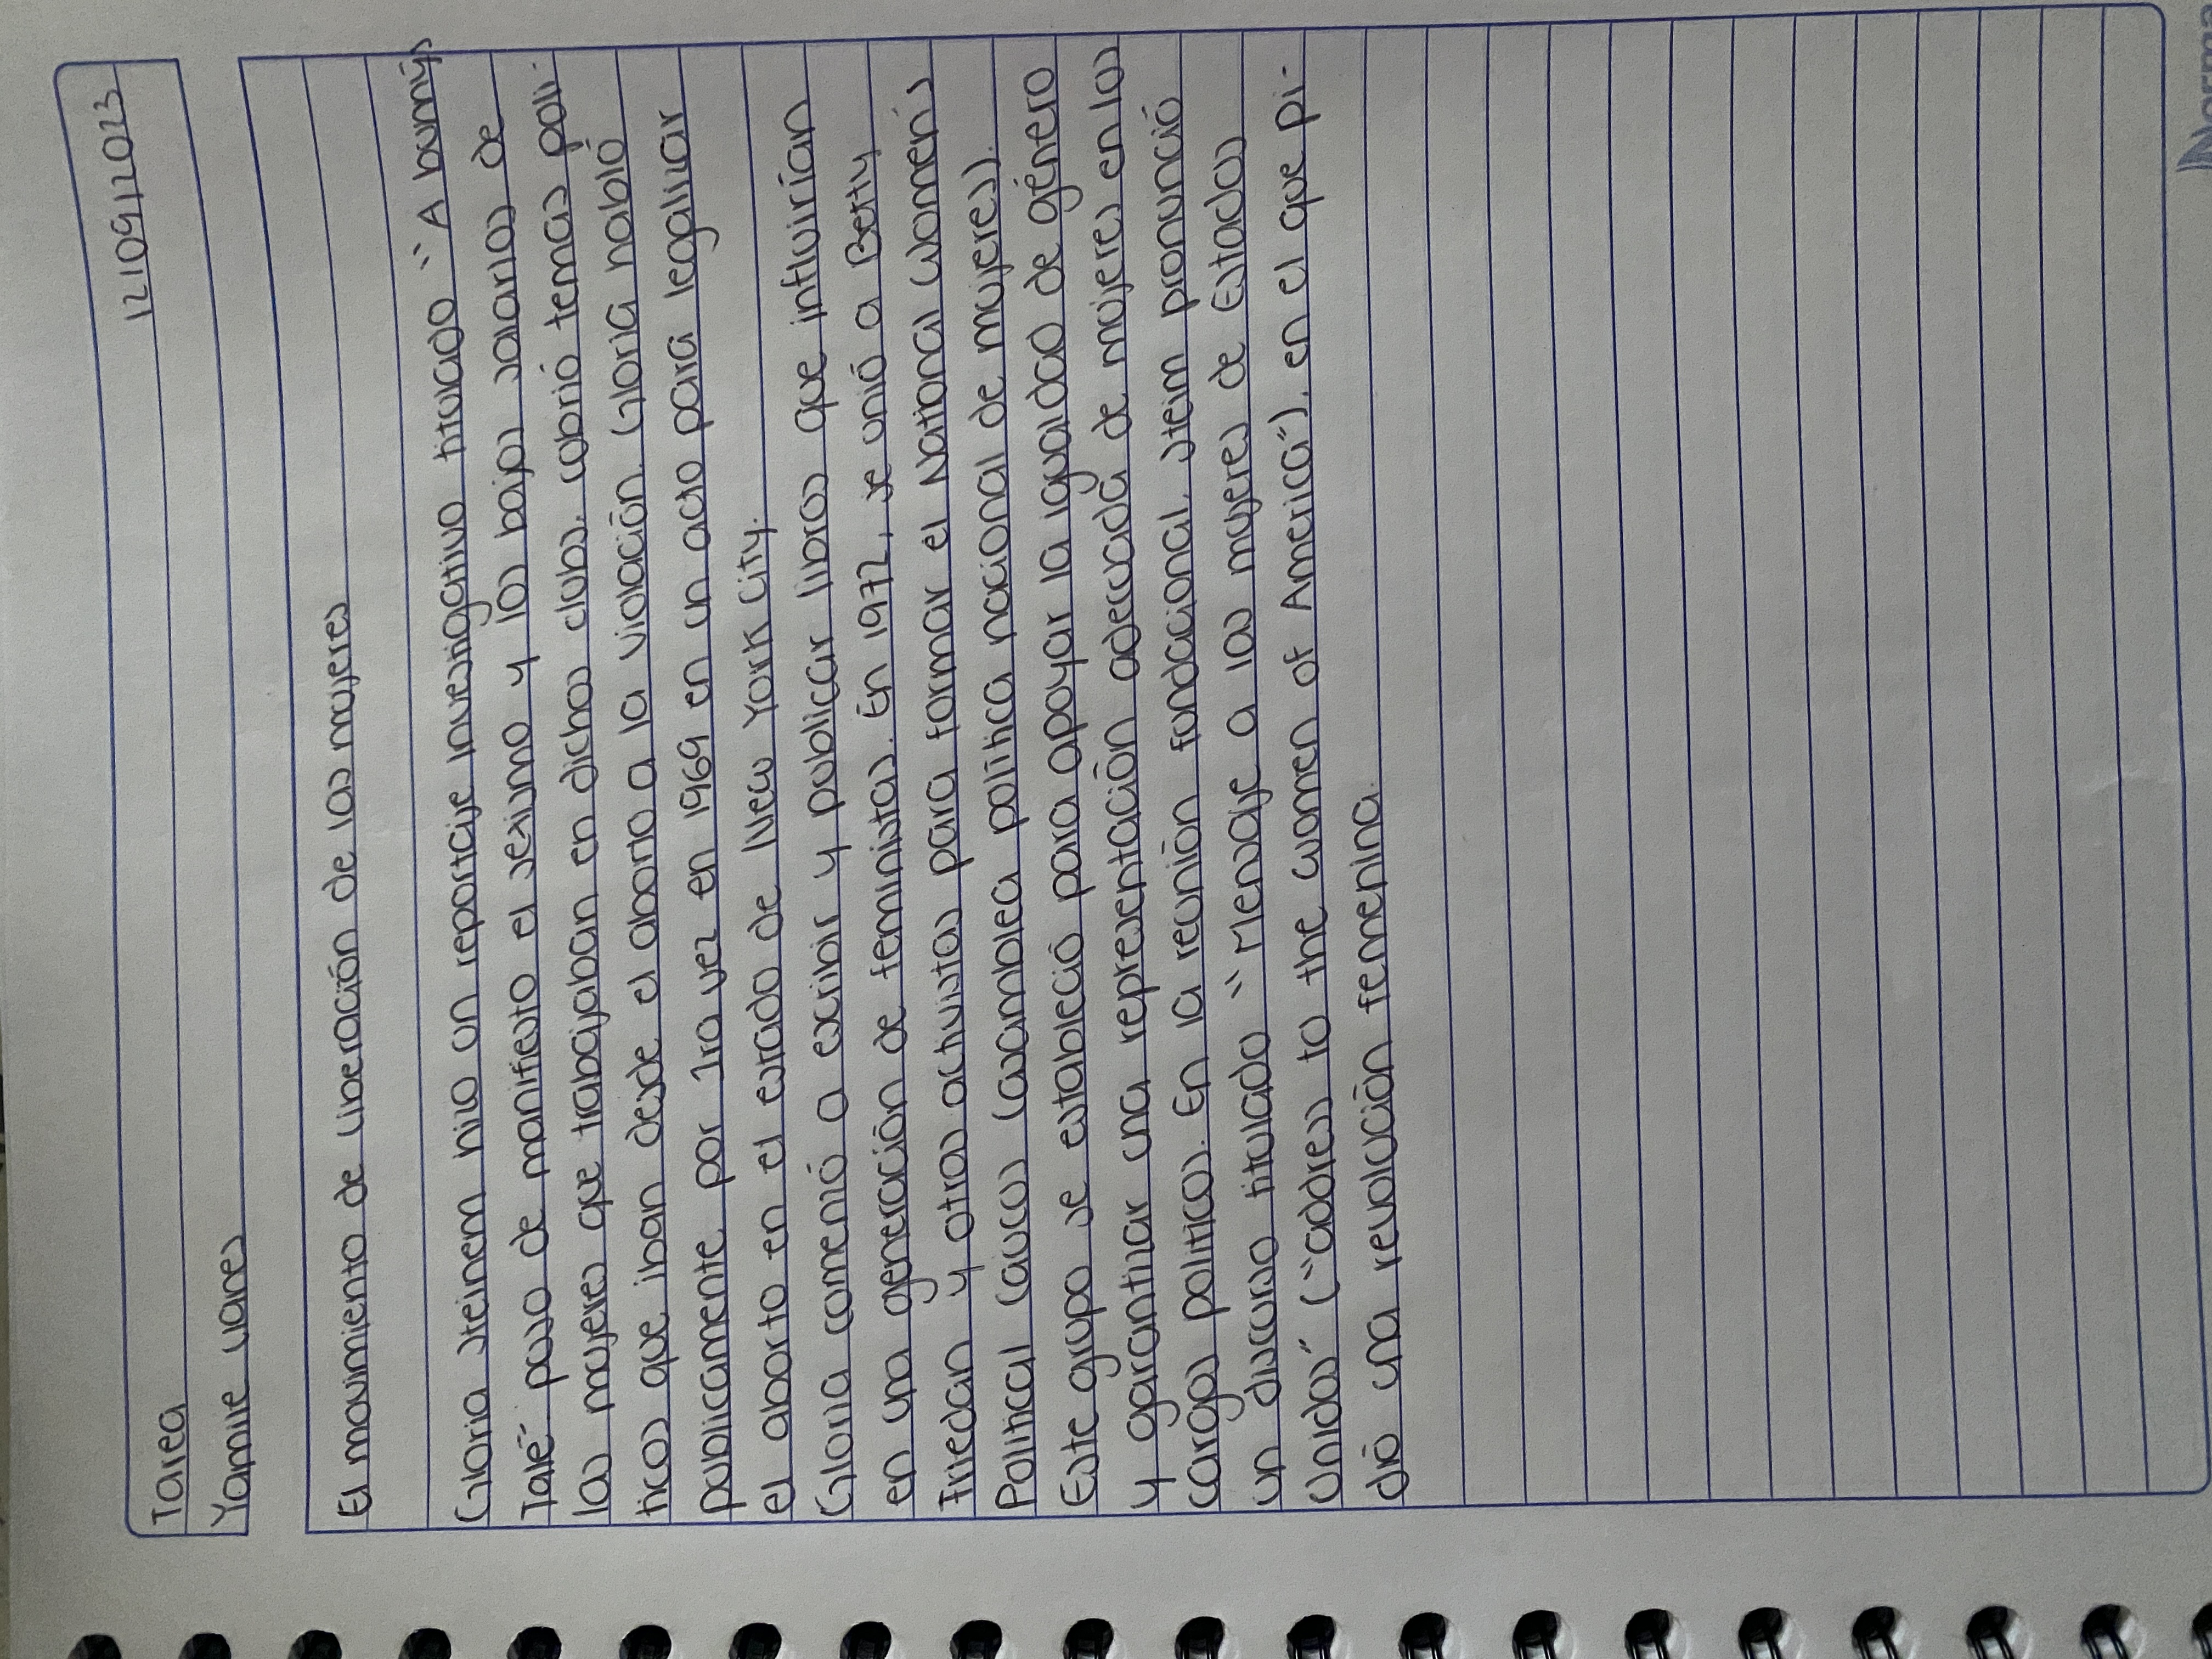 12/09/2023
Tarea
Yamile Vanes
El movimiento de liberación de las mujeres
Gloria Steinem hizo un reportaje investigativo titulado "A bunny's
Tale" puso de manifiesto el sexismo y los bajos salarios de
las mujeres que trabajaban en dichos clubs. Cubrió temas polí-
ticos que iban desde el aborto a la violación. Gloria habló
publicamente por 1ra vez en 1969 en un acto para legalizar
el aborto en el estado de New York City.
Gloria comenzó a escribir y publicar libros que influirían
en una generación de feministas. En 1972, se unió a Betty
Friedan y otras activistas para formar el National Women's
Political Caucus (asamblea política nacional de mujeres).
Este grupo se estableció para apoyar la igualdad de género
y garantizar una representación adecuada de mujeres en los
cargos políticos. En la reunión fundacional, Steim pronunció
un discurso titulado "Mensaje a las mujeres de Estados
Unidos" ("address to the women of America"), en el que pi-
dió una revolución femenina.